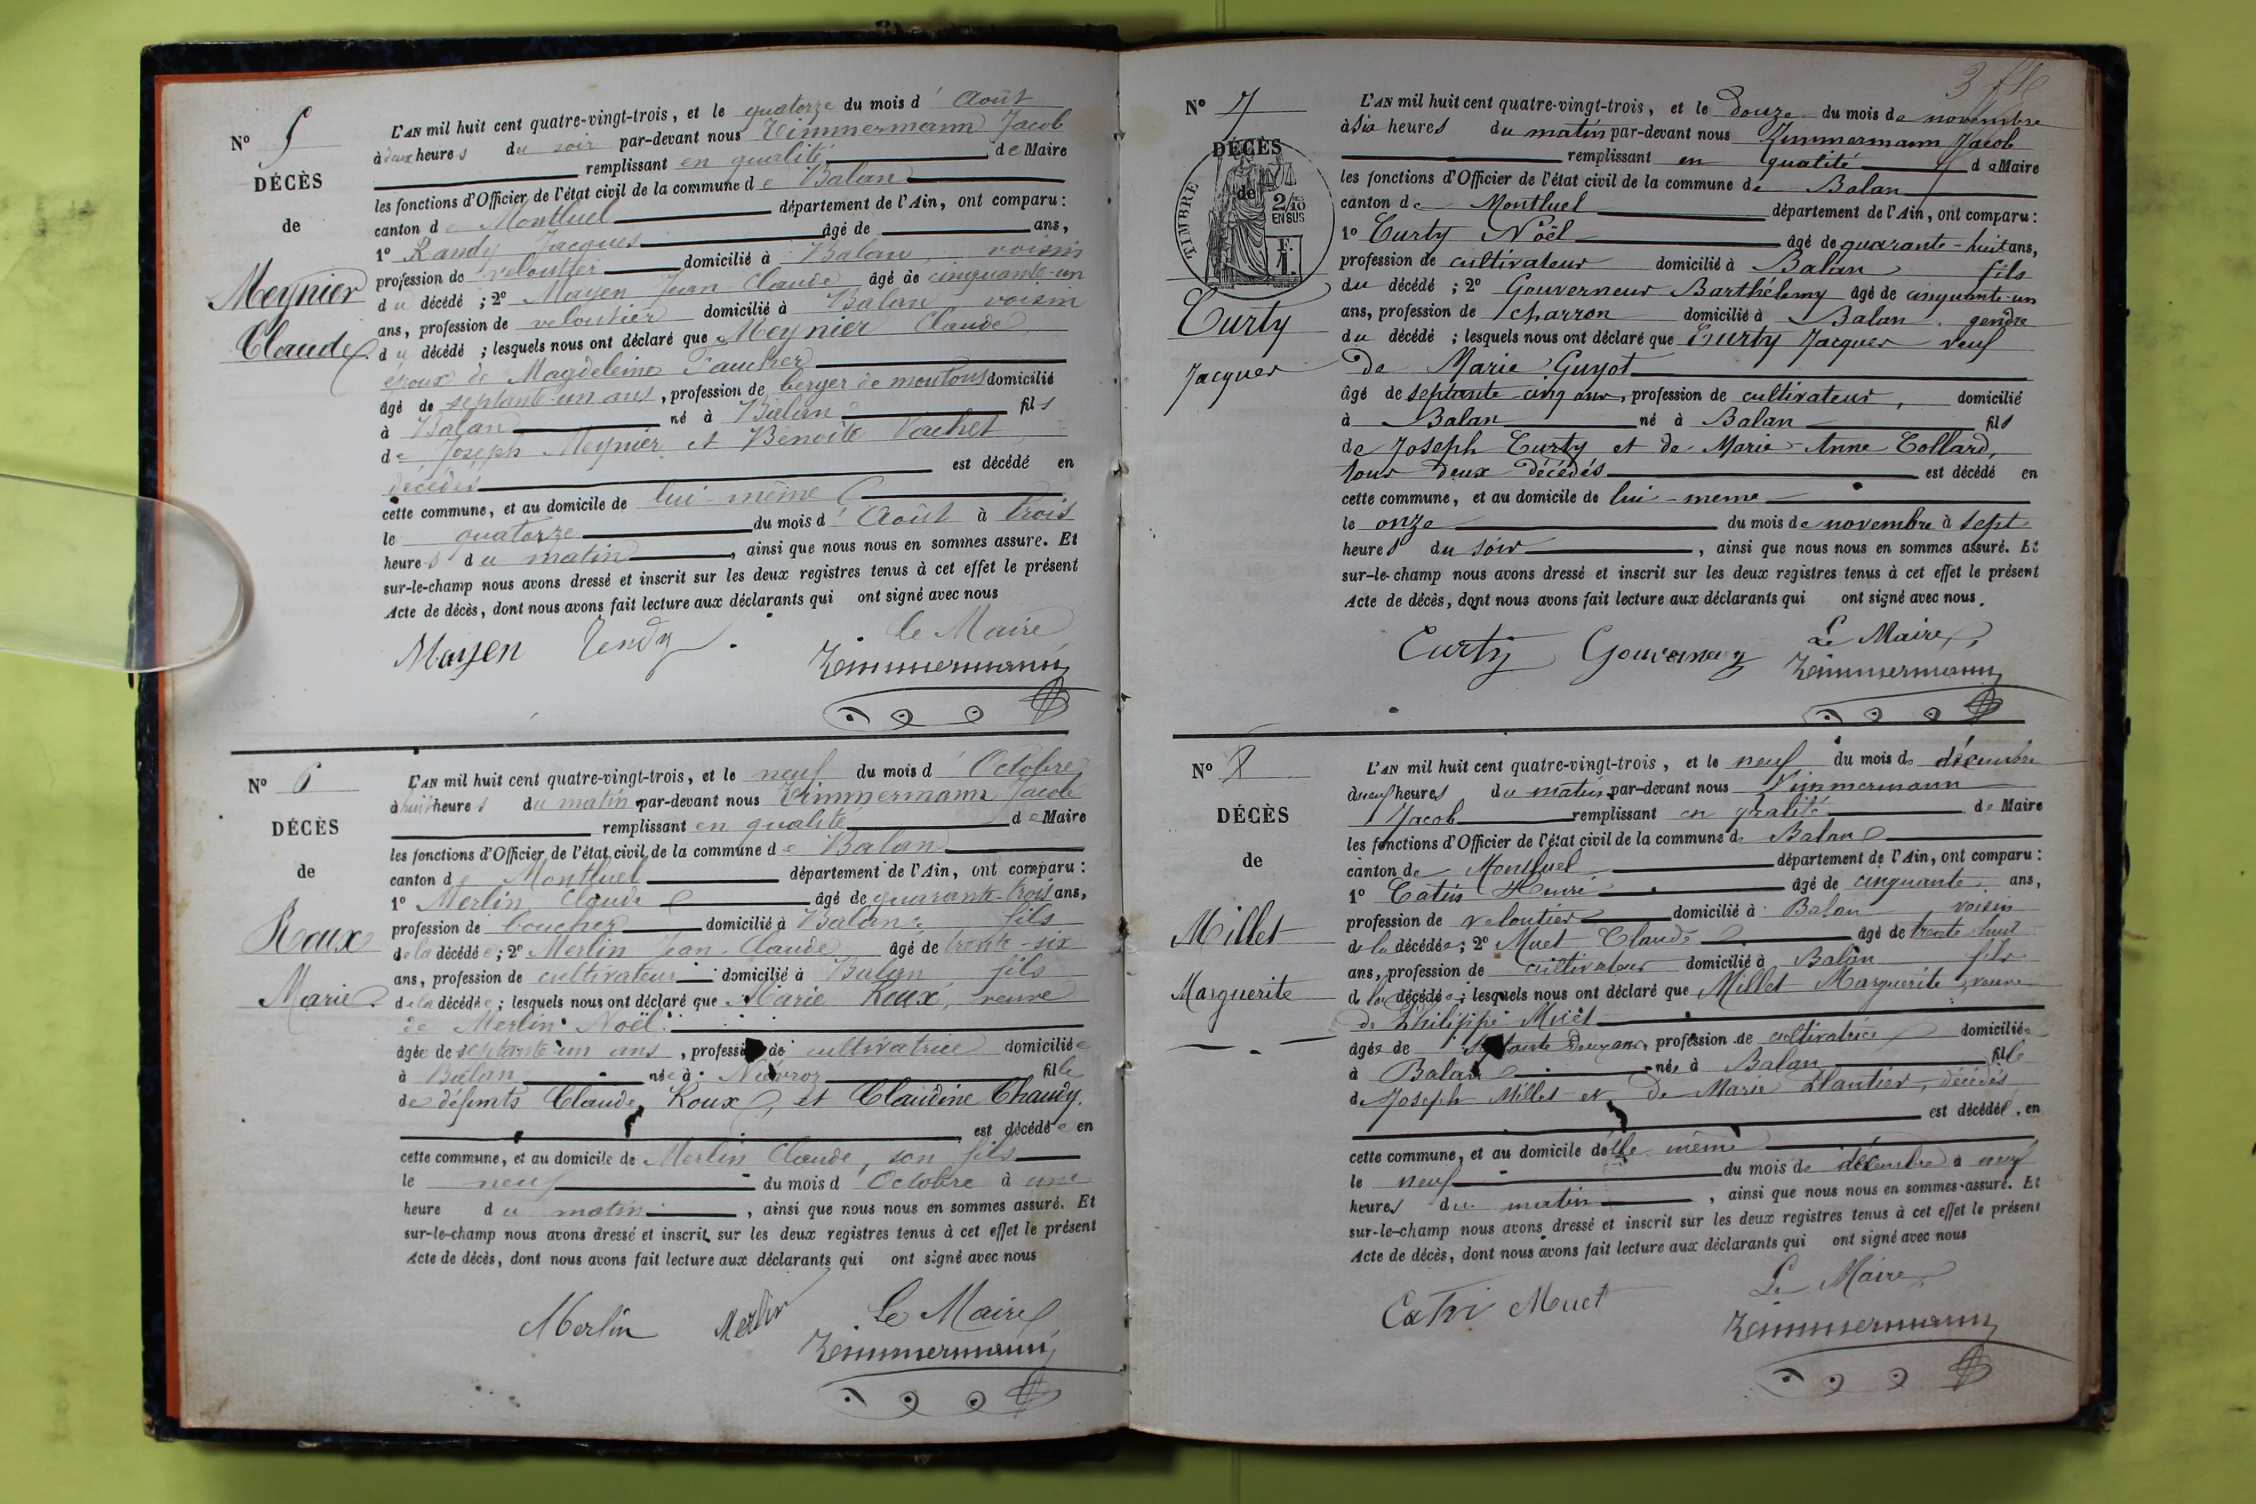 N° 5
DÉCÈS
de
Meynier
Claude
L'AN mil huit cent quatre-vingt-trois, et le quatorze du mois d' Août
à deux heures du soir par-devant nous Zimmermann Jacob
remplissant en qualité de Maire
les fonctions d'Officier de l'état civil de la commune de Balan
canton de Montluel département de l'Ain, ont comparu :
1° Randy Jacques âgé de ans,
profession de veloutier domicilié à Balan, voisin
du décédé ; 2° Mayen Jean Claude âgé de cinquante-un
ans, profession de veloutier domicilié à Balan voisin
du décédé ; lesquels nous ont déclaré que Meynier Claude
époux de Magdeleine
âgé de septante-un ans, profession de berger de moutons domicilié
à Balan né à Balan fils
de Joseph Meynier et Benoîte Vachet
décédés est décédé en
cette commune, et au domicile de lui-même
le quatorze du mois d' Août à trois
heures du matin, ainsi que nous nous en sommes assuré. Et
sur-le-champ nous avons dressé et inscrit sur les deux registres tenus à cet effet le présent
Acte de décès, dont nous avons fait lecture aux déclarants qui ont signé avec nous
le Maire
Mayen Zimmermann
N° 6
DÉCÈS
de
Roux
Marie
L'AN mil huit cent quatre-vingt-trois, et le neuf du mois d' Octobre
à huit heures du matin par-devant nous Zimmermann Jacob
remplissant en qualité de Maire
les fonctions d'Officier de l'état civil de la commune de Balan
canton de Montluel département de l'Ain, ont comparu :
1° Merlin Claude âgé de quarante-trois ans,
profession de boucher domicilié à Balan fils
de la décédée ; 2° Merlin Jean-Claude âgé de trente-six
ans, profession de cultivateur domicilié à Balan fils
de la décédée ; lesquels nous ont déclaré que Marie Roux, veuve
de Merlin Noël
âgée de septante-un ans, profession de cultivatrice domiciliée
à Balan née à Niévroz fille
de défunts Claude Roux, et Claudine Chaudy.
est décédée en
cette commune, et au domicile de Merlin Claude, son fils
le neuf du mois d' Octobre à une
heure du matin, ainsi que nous nous en sommes assuré. Et
sur-le-champ nous avons dressé et inscrit sur les deux registres tenus à cet effet le présent
Acte de décès, dont nous avons fait lecture aux déclarants qui ont signé avec nous
Merlin Merlin Le Maire
Zimmermann
N° 7
DÉCÈS
de
TIMBRE
2/10
EN SUS
F.
1.
Curty
Jacques
L'AN mil huit cent quatre-vingt-trois, et le Douze du mois de novembre
à six heures du matin par-devant nous Zimmermann Jacob
remplissant en qualité de Maire
les fonctions d'Officier de l'état civil de la commune de Balan
canton de Montluel département de l'Ain, ont comparu :
1° Curty Noël âgé de quarante-huit ans,
profession de cultivateur domicilié à Balan fils
du décédé ; 2° Gouverneur Barthélemy âgé de cinquante-un
ans, profession de charron domicilié à Balan. gendre
du décédé ; lesquels nous ont déclaré que Curty Jacques veuf
de Marie Guyot
âgé de septante-cinq ans, profession de cultivateur, domicilié
à Balan né à Balan fils
de Joseph Curty et de Marie-Anne Collard,
tous deux décédés est décédé en
cette commune, et au domicile de lui-meme
le onze du mois de novembre à sept
heures du soir, ainsi que nous nous en sommes assuré. Et
sur-le-champ nous avons dressé et inscrit sur les deux registres tenus à cet effet le présent
Acte de décès, dont nous avons fait lecture aux déclarants qui ont signé avec nous.
Le Maire,
Curty Gouverneur Zimmermann
N° 8
DÉCÈS
de
Millet
Marguerite
L'AN mil huit cent quatre-vingt-trois, et le neuf du mois de décembre
à neuf heures du matin par-devant nous Zimmermann
Jacob remplissant en qualité de Maire
les fonctions d'Officier de l'état civil de la commune de Balan
canton de Montluel département de l'Ain, ont comparu :
1° Catin Henri âgé de cinquante ans,
profession de veloutier domicilié à Balan voisin
de la décédée ; 2° Muet Claude âgé de trente-huit
ans, profession de cultivateur domicilié à Balan fils
de la décédée ; lesquels nous ont déclaré que Millet Marguerite, veuve
de Philippe Muet
âgée de ans, profession de cultivatrice domiciliée
à Balan née à Balan fille
de Joseph Millet et de Marie Plantier, décédés
est décédée en
cette commune, et au domicile d'elle même
le neuf du mois de décembre à neuf
heures du matin, ainsi que nous nous en sommes assuré. Et
sur-le-champ nous avons dressé et inscrit sur les deux registres tenus à cet effet le présent
Acte de décès, dont nous avons fait lecture aux déclarants qui ont signé avec nous
Le Maire
Muet Zimmermann